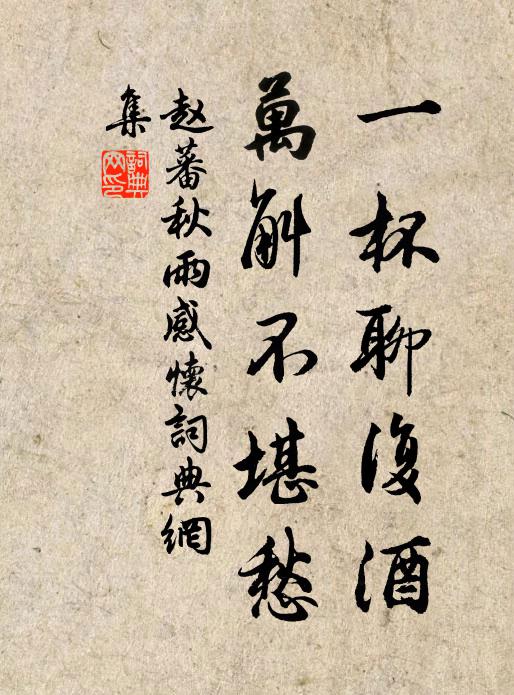 一杯聊復酒
萬斛不堪愁
赵蕃秋雨感懷詞典網
集
詞典
网印